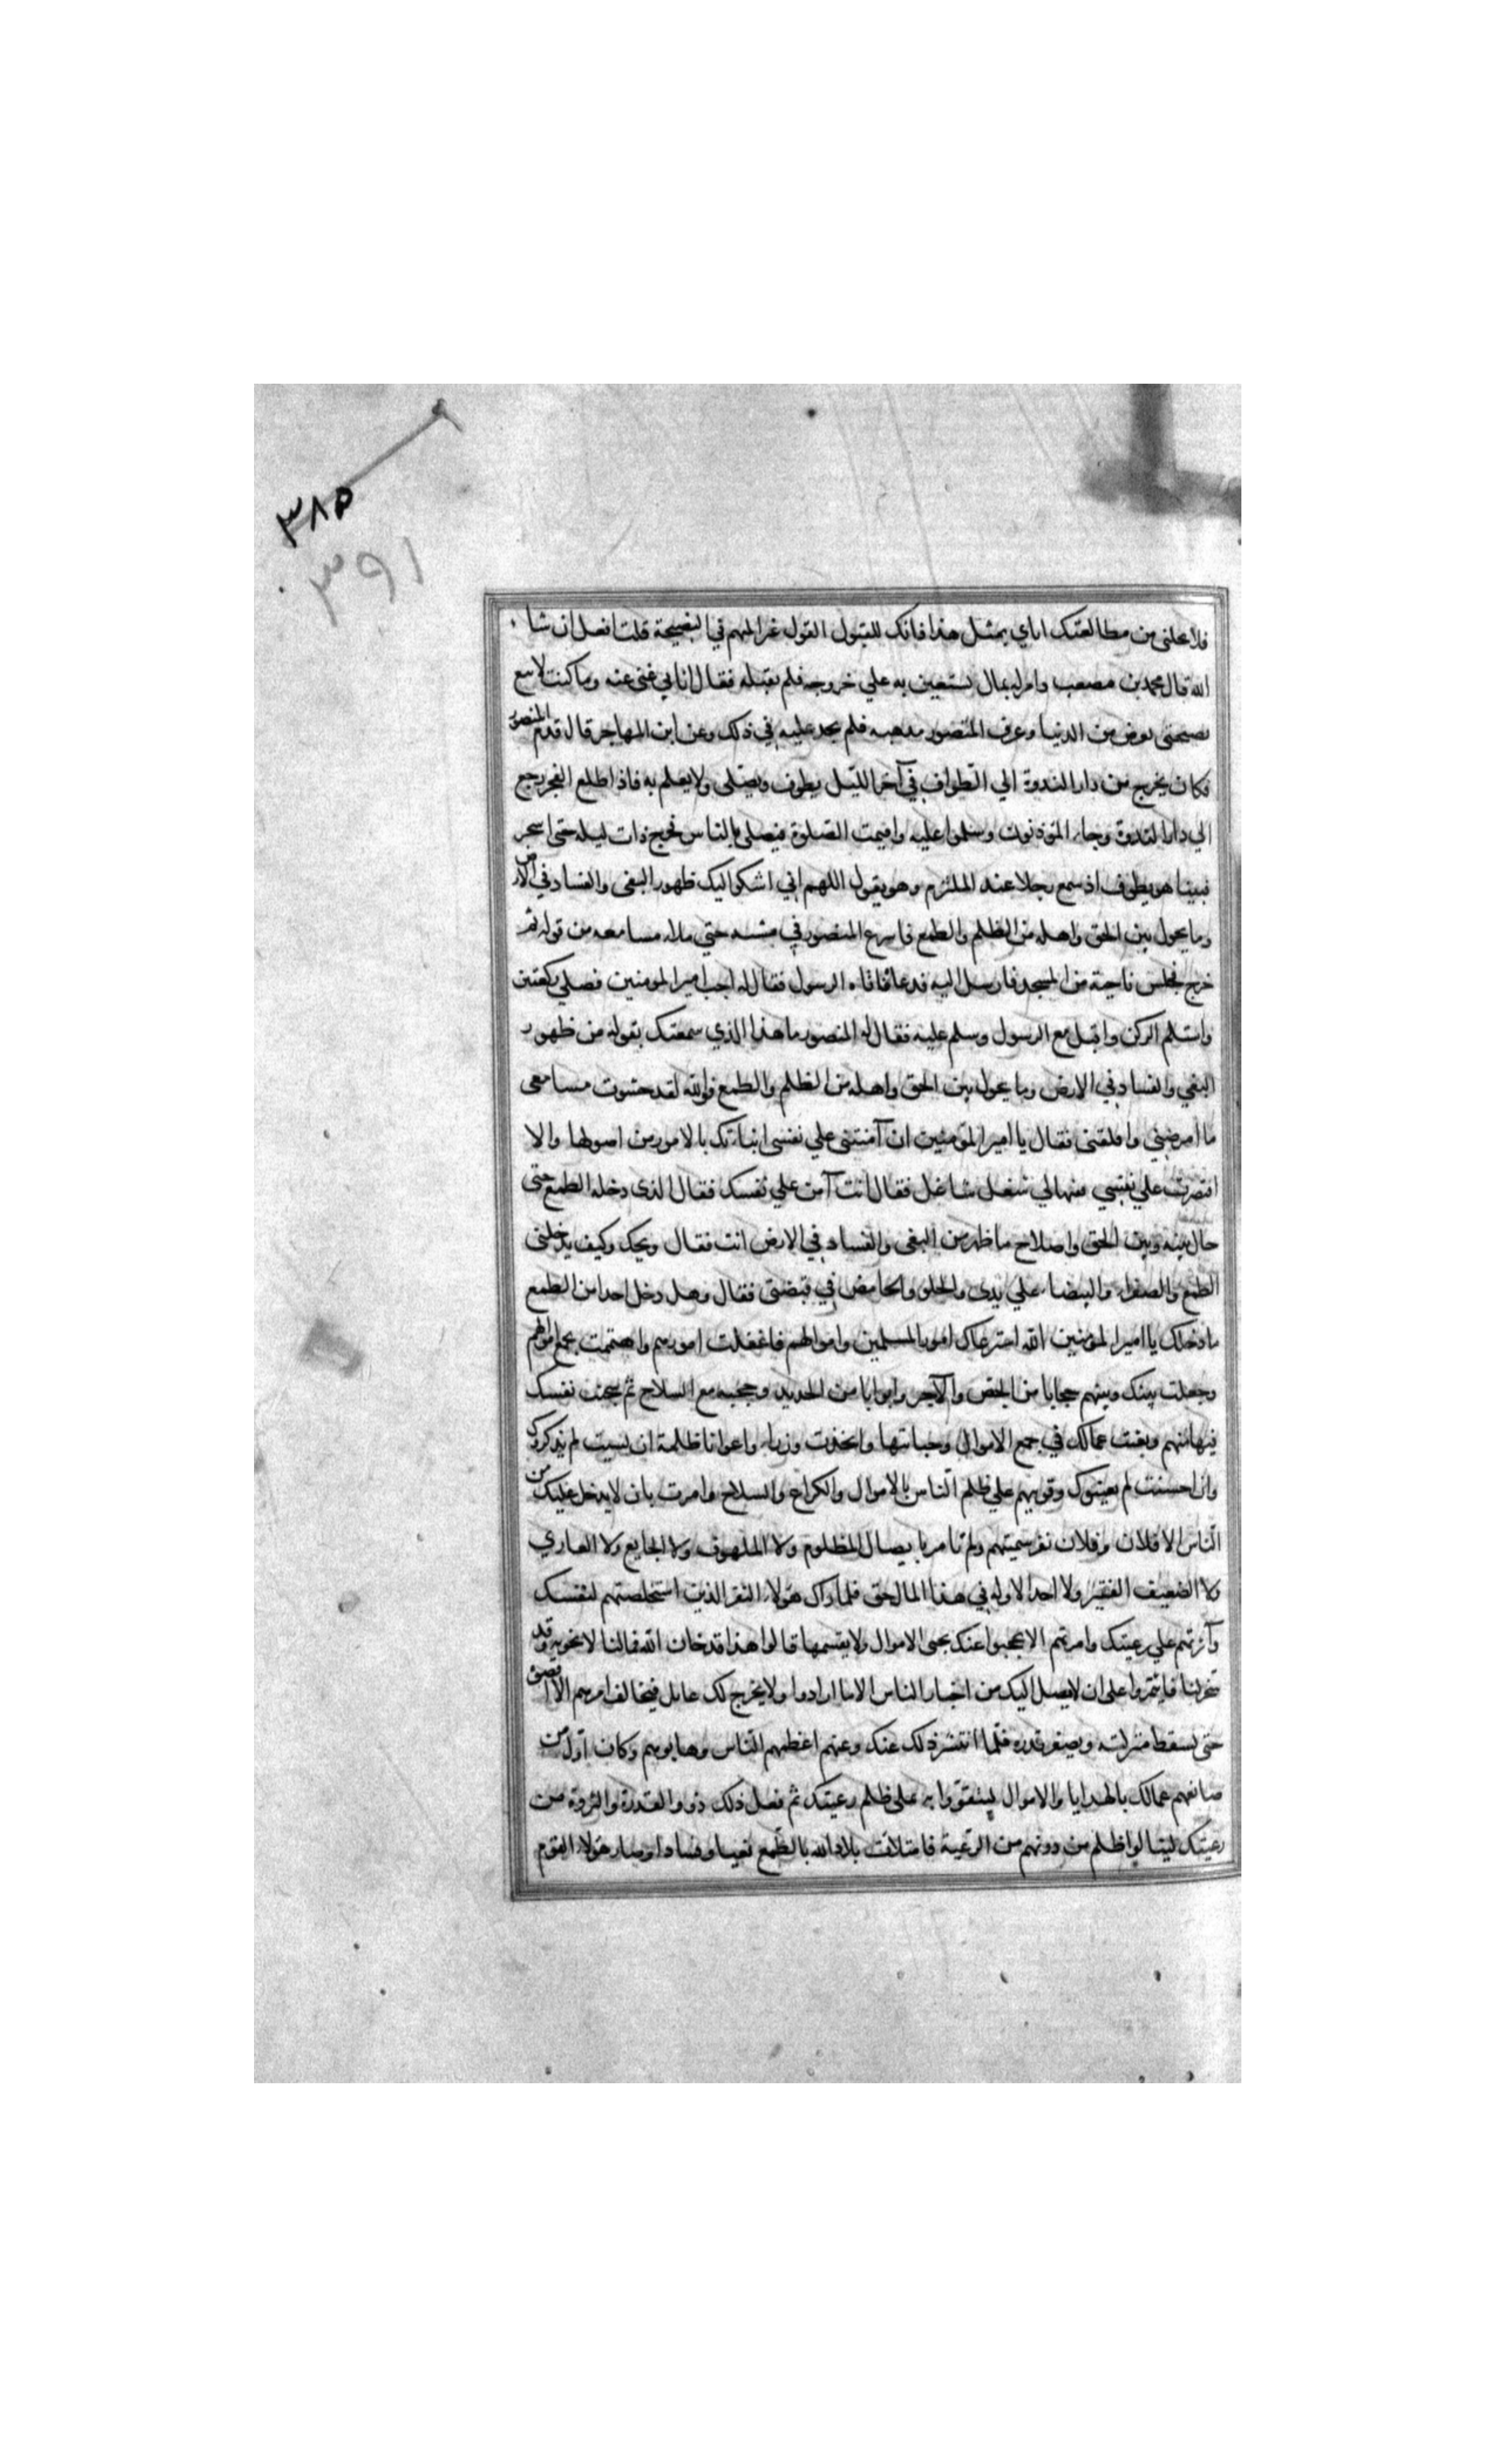 ٣٨٥
٣٩١
فلا تخلنى من مطالعتك اياي بمثل هذا فانك للقبول القول غير المتهم في النصيحة قلت افعل ان شاء
الله قال محمد بن مصعب وامر له بمال يستعين به علي خروجه فلم يقبله فقال انا في غنى عنه وما كنت لابيع
نصيحتى بعوض من الدنيا وعرف المنصور مذهبه فلم يجد عليه في ذلك وعن ابن المهاجر قال قدم المنصور
فكان يخرج من دار الندوة الي الطواف في آخر الليل يطوف ويصلى ولا يعلم به فاذا طلع الفجر رجع
الي دار الندوة وجاء المؤذنون وسلموا عليه واقيمت الصلوة فيصلي بالناس فخرج ذات ليلة حتى اسحر
فبينا هو يطوف اذ سمع رجلا عند الملتزم وهو يقول اللهم اني اشكو اليك ظهور البغى والفساد في الارض
وما يحول بين الحق واهله من الظلم والطمع فاسرع المنصور في مشيه حتي ملاء مسامعه من قوله ثم
خرج فجلس ناحية من المسجد فارسل اليه فدعاه فاتاه الرسول فقال له اجب امير المومنين فصلي ركعتين
واستلم الركن واقبل مع الرسول وسلم عليه فقال له المنصور ما هذا الذي سمعتك تقوله من ظهور
البغي والفساد في الارض وما يحول بين الحق واهله من الظلم والطمع فوالله لقد حشوت مسامعى
ما امرضني واقلقنى فقال يا امير المؤمنين ان آمنتنى علي نفسى انباتك بالامور من اصولها والا
اقتصرت علي نفسي ففيها لي شغل شاغل فقال انت آمن علي نفسك فقال الذى دخله الطمع حتى
حال بينه وبين الحق واصلاح ما ظهر من البغى والفساد في الارض انت فقال ويحك وكيف يدخلنى
الطمع والصفراء والبيضاء علي يدى والحلو والحامض في قبضتى فقال وهل دخل احدا من الطمع
ما دخلك يا امير المومنين ان الله استرعاك امور المسلمين واموالهم فاغفلت امورهم واهتممت بجمع اموالهم
وجعلت بينك وبينهم حجابا من الجص والآجر وابوابا من الحديد وحجبه مع السلاح ثم سجنت نفسك
فيها منهم وبعثت عمالك في جمع الاموال وجبايتها واتخذت وزراء واعوانا ظلمة ان نسيت لم يذكروك
وان احسنت لم يعينوك وقويتهم علي ظلم الناس بالاموال والكراع والسلاح وامرت بان لا يدخل عليك من
الناس الا فلان وفلان نفر سميتهم ولم تامر بايصال المظلوم ولا الملهوف ولا الجايع ولا العاري
ولا الضعيف الفقير ولا احد الا وله في هذا المال حق فلما راك هؤلاء النفر الذين استخلصتهم لنفسك
وآثرتهم علي رعيتك وامرتهم الا يحجبوا عنك تجبى الاموال ولا يقسمها قالوا هذا قد خان الله فما لنا لا نخونه وقد
سخر لنا فايتمروا على ان لا يصل اليك من اخبار الناس الا ما ارادوا ولا يخرج لك عامل فيخالف امرهم الا اقصوه
حتى تسقط منزلته ويصغر قدره فلما انتشر ذلك عنك وعنهم اعظمهم الناس وهابوهم وكان اول من
صانعهم عمالك بالهدايا والاموال ليتقووا به على ظلم رعيتك ثم فعل ذلك ذوو القدرة والثروة من
رعيتك لينالوا ظلم من دونهم من الرعية فامتلات بلاد الله بالطمع بغيا وفسادا وصار هؤلاء القوم